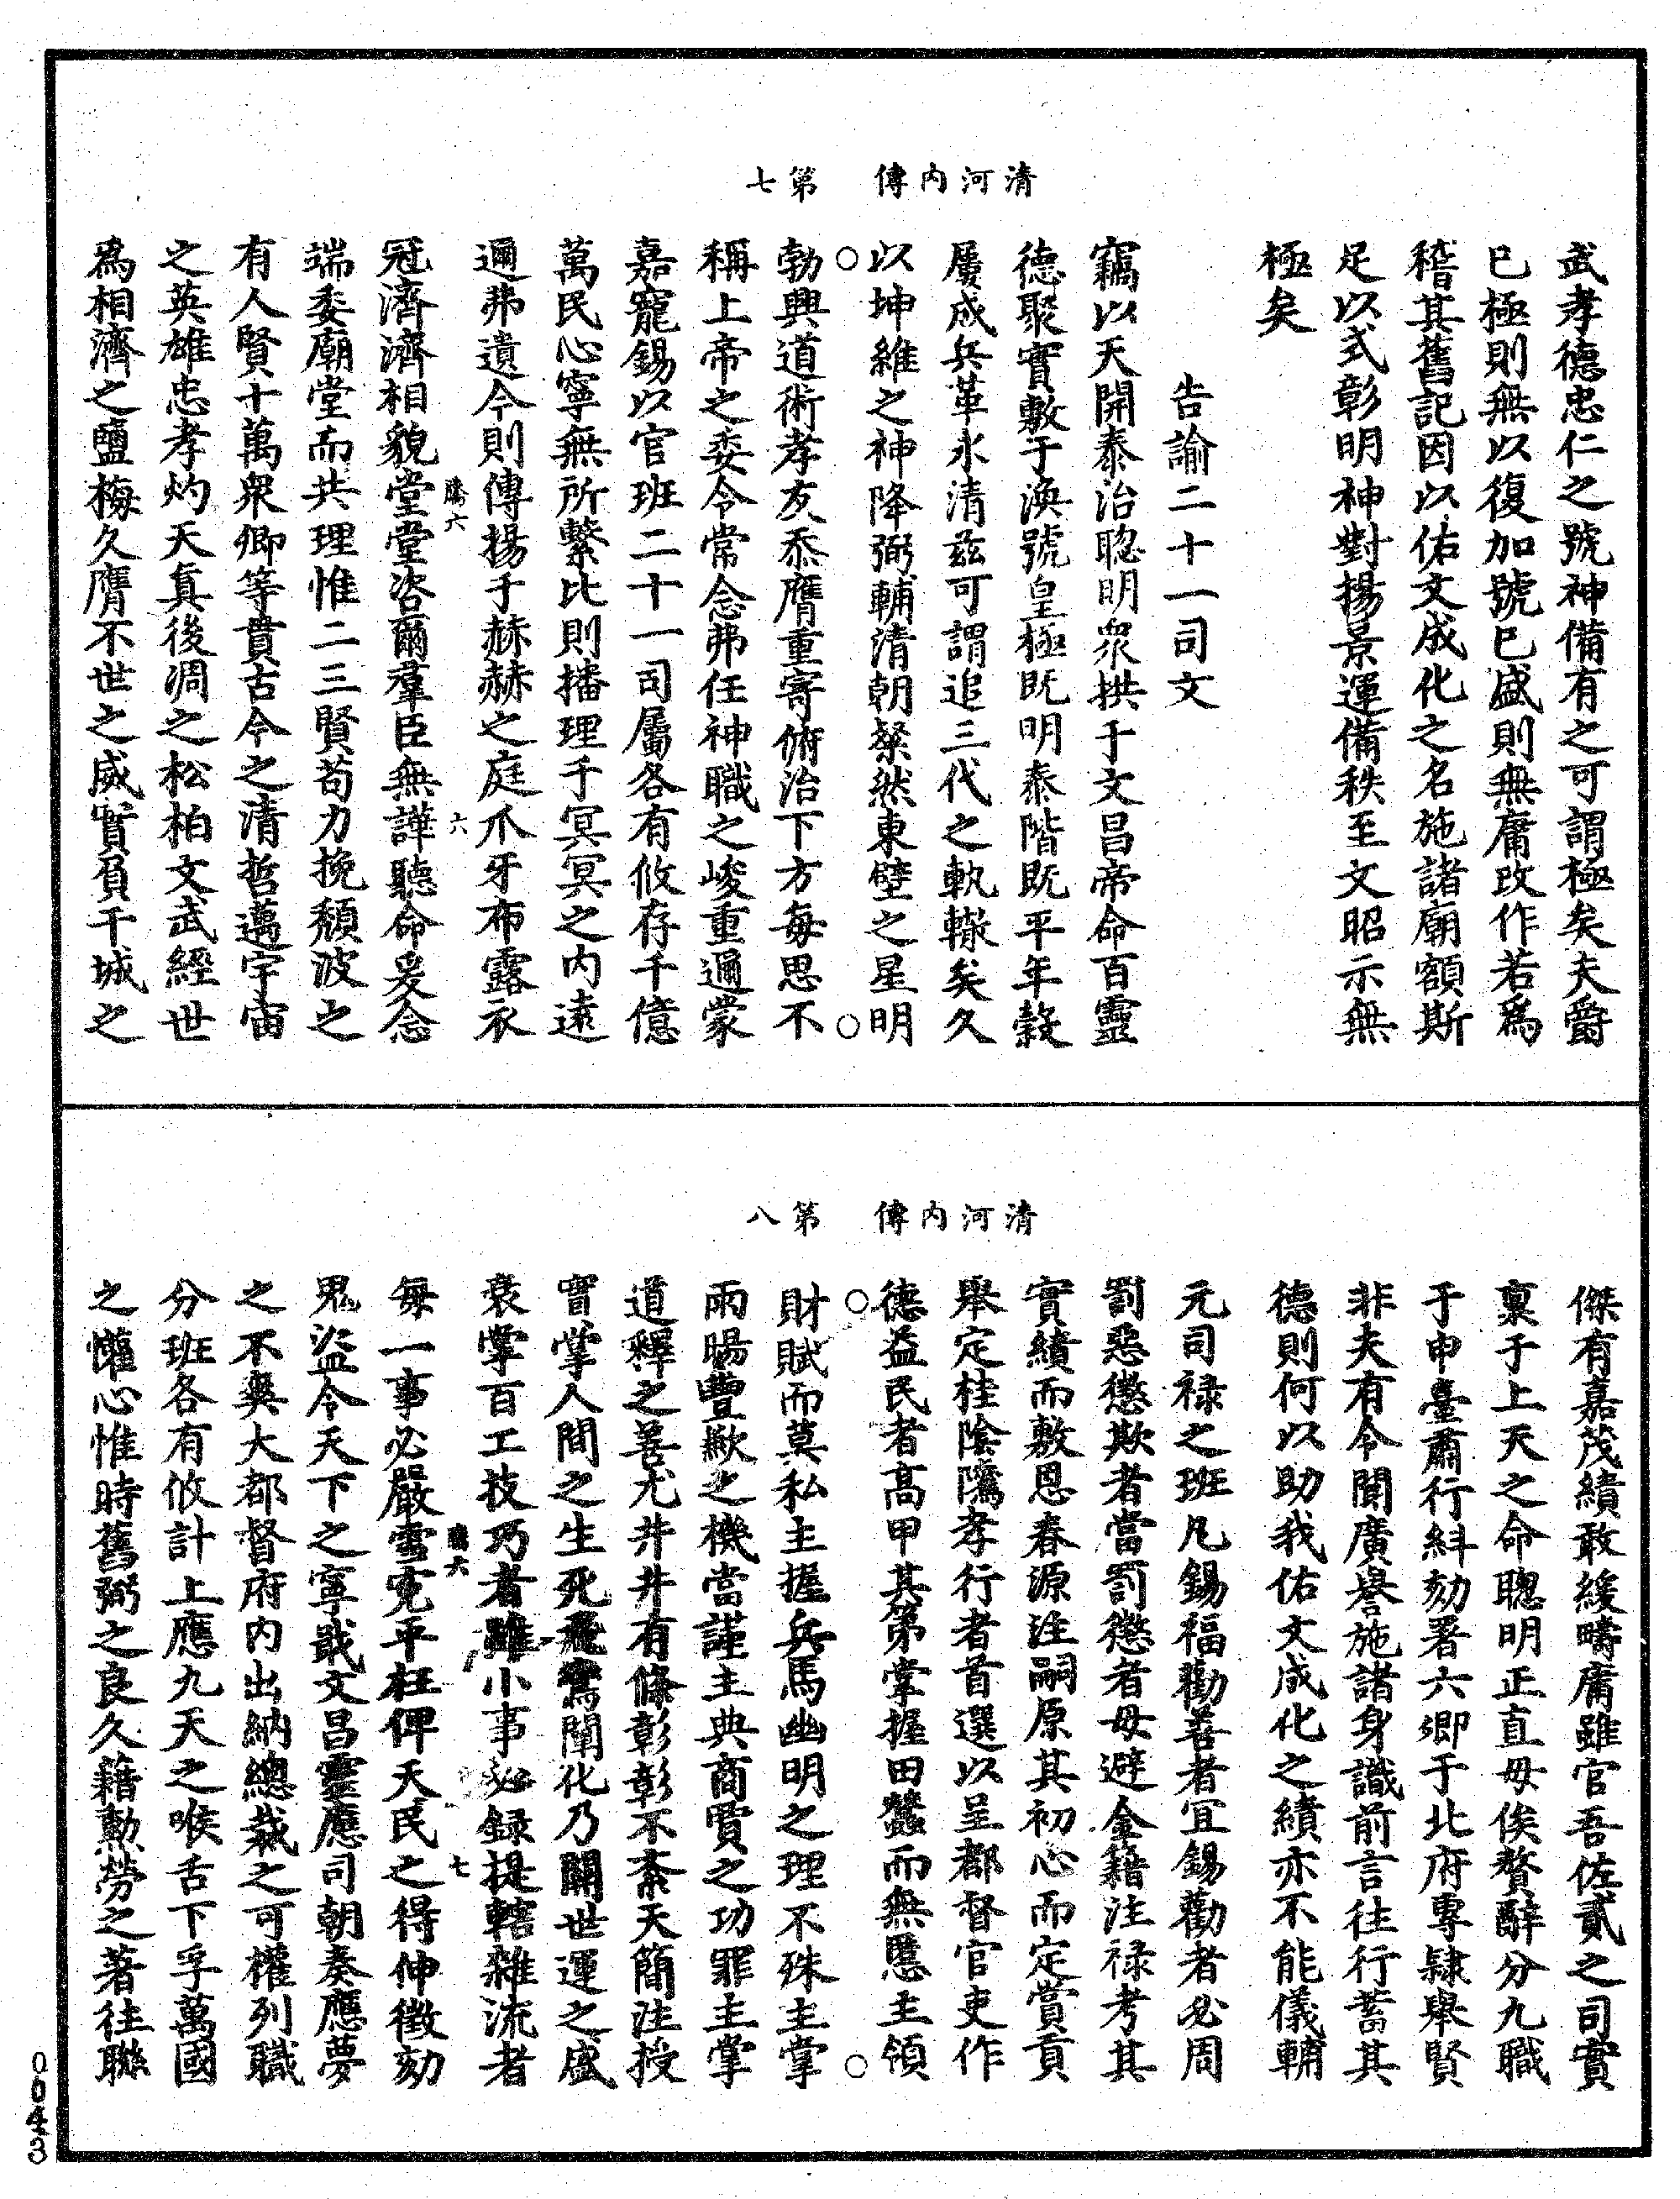 清河内傳　第七
武孝德忠仁之號神備有之可謂極矣夫爵
已極則無以復加號已盛則無庸改作若爲
稽其舊記因以佑文成化之名施諸廟額斯
足以式彰明神對揚景運備秩至文昭示無
極矣
告諭二十一司文
竊以天開泰治聦明衆拱于文昌帝命百靈
德聚實敷于渙號皇極既明泰階既平年穀
屢成兵革永清兹可謂追三代之軌轍矣久
以坤維之神降弼輔清朝粲然東壁之星明
勃興道術孝友忝膺重寄俯治下方每思不
稱上帝之委令常念弗任神職之峻重邇蒙
嘉寵錫以官班二十一司屬各有攸存千億
萬民心寧無所繫比則播理千冥冥之内遠
邇弗遺今則傳揚于赫赫之庭爪牙布露衣
騰六　六
冠濟濟相貌堂堂咨爾羣臣無譁聽命爰念
端委廟堂而共理惟二三賢苟力挽頹波之
有人賢十萬衆卿等貫古今之清哲邁宇宙
之英雄忠孝灼天真後凋之松柏文武經世
爲相濟之鹽梅久膺不世之威實負干城之
清河内傳　第八
傑有嘉茂績敢緩疇庸雖官吾佐貳之司實
稟于上天之命聰明正直毋俟贅辭分九職
于申臺肅行糾劾署六卿于北府專隸舉賢
非夫有令聞廣譽施諸身識前言往行蓄其
德則何以助我佑文成化之績亦不能儀輔
元司禄之班凡錫福勸善者宜錫勸者必周
罰惡懲欺者當罰懲者毋避金籍注禄考其
實績而敷恩春源注嗣原其初心而定賞貢
舉定桂陰隲孝行者首選以呈郡督官吏作
德益民者高甲其第掌握田蠶而無慝主領
財賦而莫私主握兵馬幽明之理不殊主掌
雨暘豐歉之機當謹主典商賈之功罪主掌
道釋之善尤井井有條彰彰不紊天簡注授
實掌人間之生死飛鸞闡化乃關世運之盛
衰掌百工技巧者雖小事必録提轄雜流者
騰六　七
每一事必嚴雪寃平枉俾天民之得伸徵劾
鬼盜令天下之寧戢文昌靈應司朝奏應夢
之不爽大都督府内出納總裁之可權列職
分班各有攸計上應九天之喉舌下孚萬國
之懽心惟時舊弼之良久藉勲勞之著往聮
0043